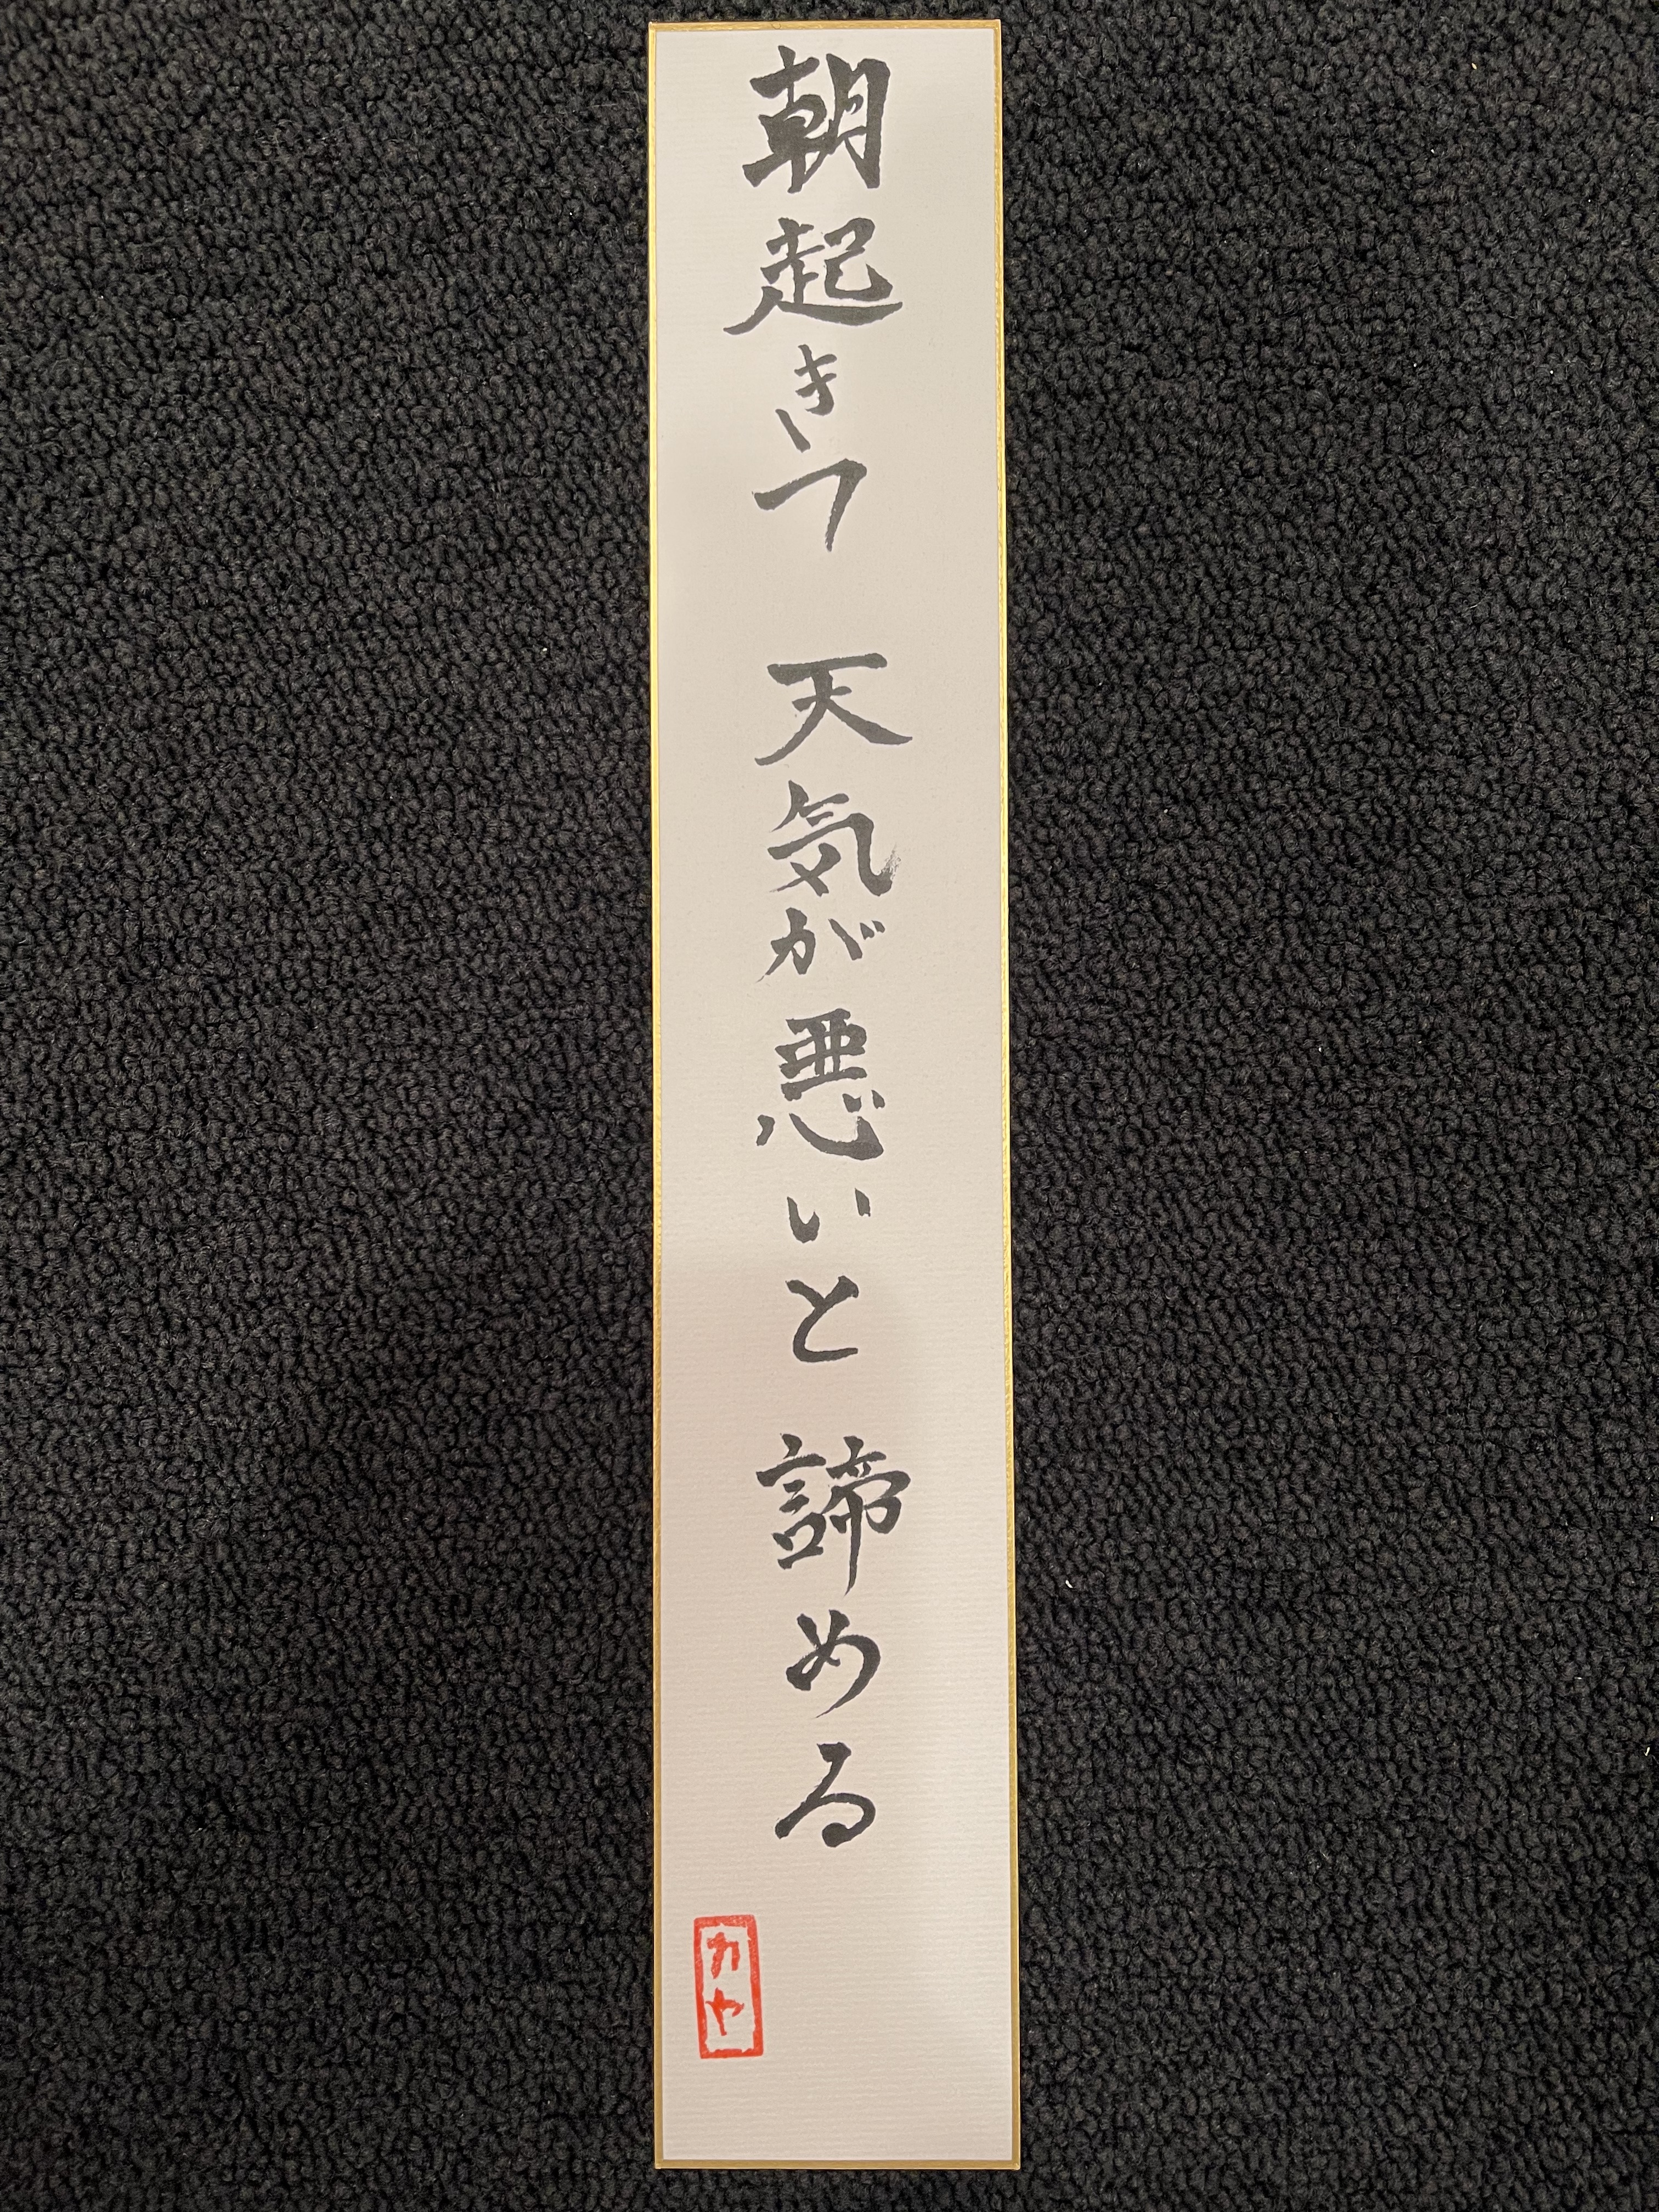 朝起きつ 天気が悪いと 諦める
カヤ